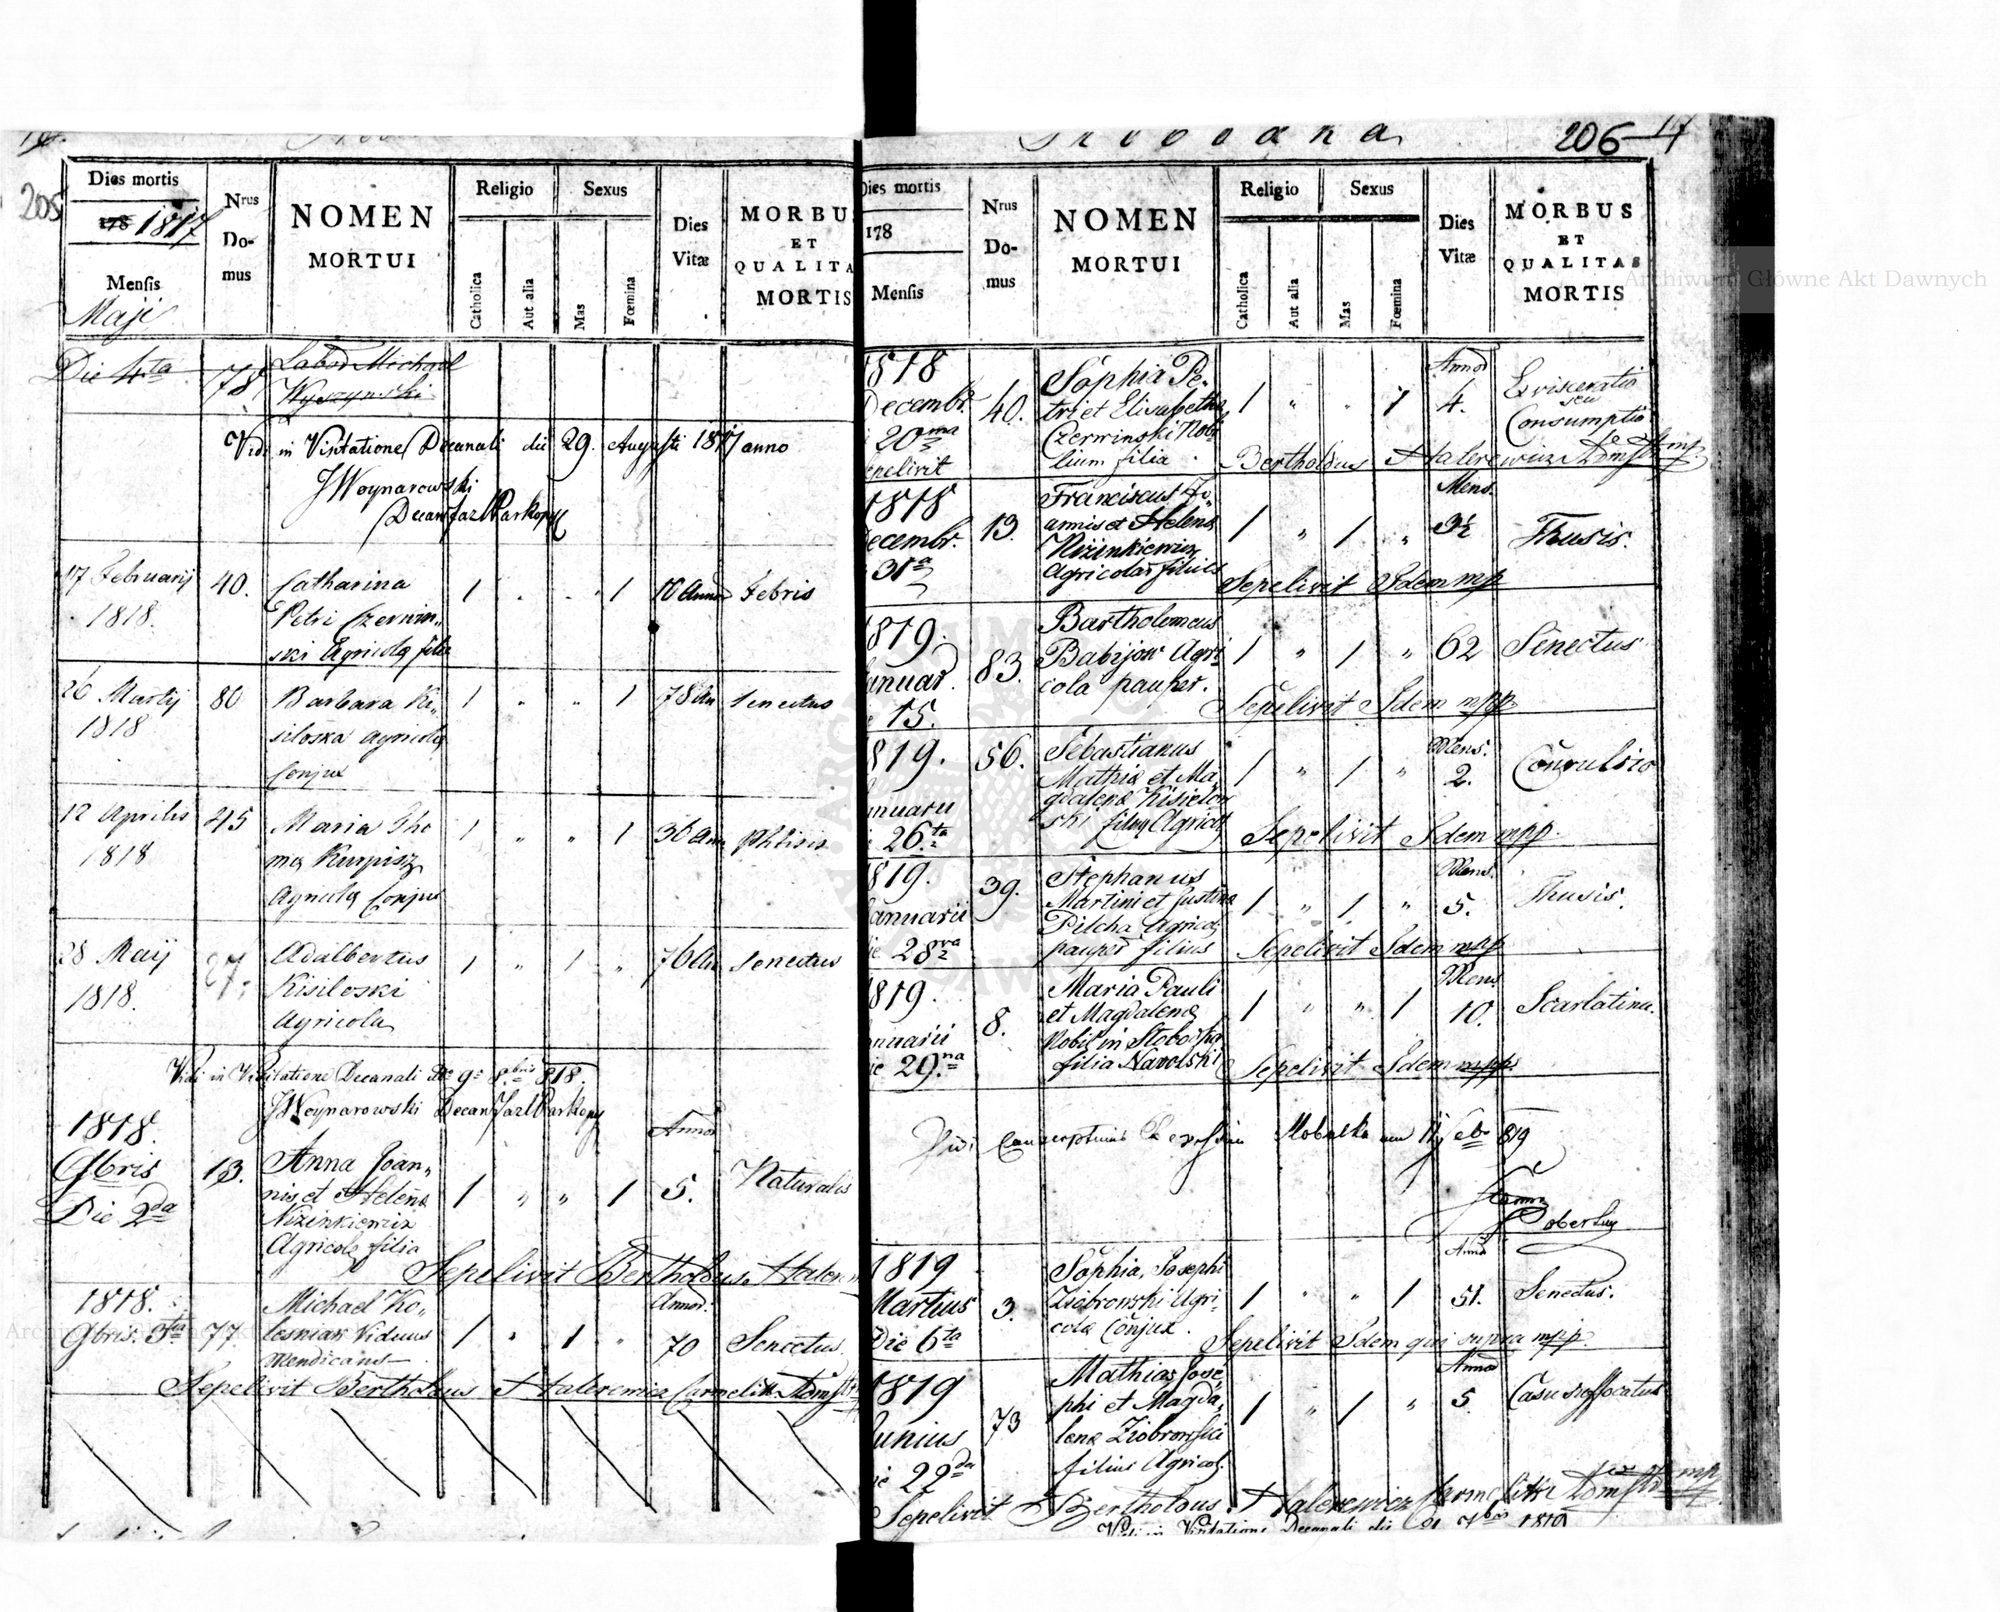 205
Dies mortis
178 1817
Mensis
Maji
Nrus
Do-
mus
NOMEN
MORTUI
Religio
Catholica
Aut alia
Sexus
Mas
Fœmina
Dies
Vitæ
MORBU
ET
QUALITA
MORTIS
Die 4ta
78
Michael
Wyszynski
Vidi in Visitatione Decanali die 29. Augusti 1817 anno
JWoynarowski
17 Februarij
1818.
40.
Catharina
Petri Czerwin-
ski Agricolæ filia
1 " " 1
Febris
26 Martij
1818
80
Barbara Ki-
siloska agricolæ
Conjux
1 " " 1
78 an
Senectus
12 Aprilis
1818
45
Maria Tho
mæ Kurpisz
Agricolæ Conjux
1 " " 1
36 ann
Phtisis
28 Maij
1818.
27.
Adalbertus
Kisiloski
Agricola
1 " 1 "
76 an
Senectus
Vidi in Visitatione Decanali die 9a 8bris 818.
JWoynarowski
1818.
9bris
Die 2da
13.
Anna Joan-
nis et Helenæ
Nizinkiewicz
Agricolæ filia
1 " " 1
Annor
5.
Naturalis
Sepelivit Bertholdus
1818.
9bris. 5ta
77
Michael Ko-
lesniak Viduus
Mendicans
1 " 1 "
Annor.
70
Senectus.
Sepelivit Bertholdus Halerewicz Carmelit.
206
17
Dies mortis
178
Mensis
Nrus
Do-
mus
NOMEN
MORTUI
Religio
Catholica
Aut alia
Sexus
Mas
Fœmina
Dies
Vitæ
MORBUS
ET
QUALITAS
MORTIS
Archiwum Główne Akt Dawnych
1818
Decembr.
20ma
Sepelivit
40.
Sophia Pe-
tri et Elisabetha
Czerwinski Nobi
lium filia.
1 " " 1
Annor
4.
Evisceratio
seu
Consumptio
Bertholdus Halerewicz
1818
Decembr.
31a
13.
Franciscus Jo-
annis et Helenæ
Nizinkiewicz
Agricolar filius
1 " 1 "
Mens.
3½
Thusis.
Sepelivit Idem mp
1819.
Januar.
15.
83.
Bartholomeus
Babijow Agri
cola pauper.
1 " 1 "
62
Senectus
Sepelivit Idem mpp
1819.
Januarii
26.ta
56.
Sebastianus
Mathiæ et Ma
gdalenæ Kisielow
ski filius Agricol
1 " 1 "
Mens.
2.
Convulsio
Sepelivit Idem mpp.
1819.
Januarii
28va
39.
Stephanus
Martini et Justina
Pilcha Agricol
pauper filius
1 " 1 "
Mens.
5.
Thusis.
Sepelivit Idem mpp
1819.
Januarii
Die 29.na
8.
Maria Pauli
et Magdalenæ
Nobil in Slobodka
filia Nawolski
1 " " 1
Mens
10.
Scarlatina.
Sepelivit Idem mpp.
819
1819
Martius
Die 6ta
3.
Sophia, Josephi
Ziobrowski Agri-
colæ Conjux.
1 " " 1
Anno
51.
Senectus.
Sepelivit Idem qui supra mpp.
1819
Junius
Die 22da
73
Mathias Jose-
phi et Magda-
lenæ Ziobrowski
filius Agricol.
1 " 1 "
Annor
5.
Casu suffocatus
Sepelivit Bertholdus Halerewicz Carmelita
Vidi in Visitatione Decanali die 7bris 1819